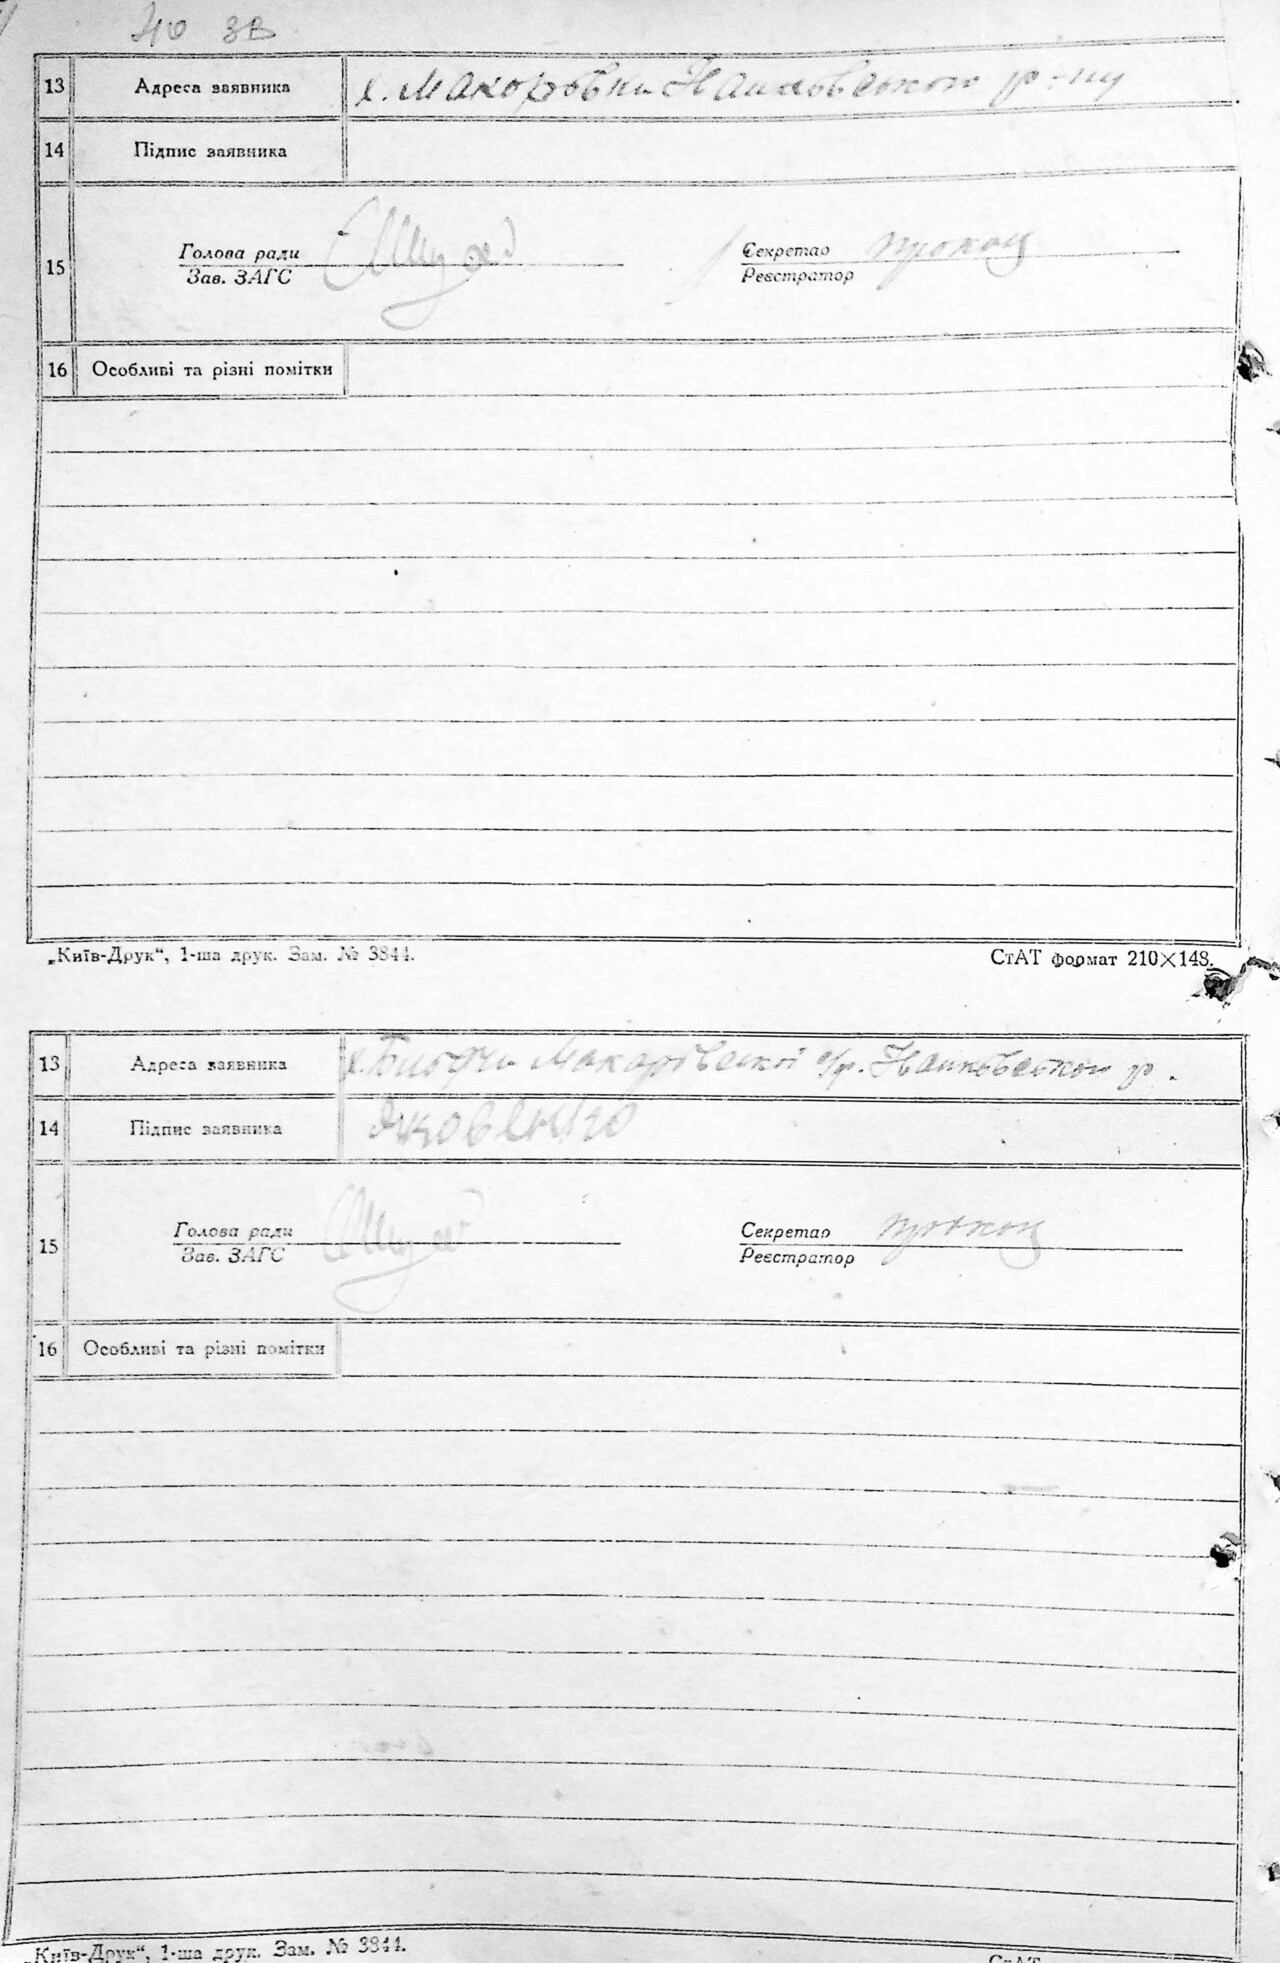 40 зв
13 Адреса заявника х. Макоровки р-ну
14 Підпис заявника
Голова ради Секретар
15
Зав. ЗАГС Реєстратор
16 Особливі та різні помітки
„Київ-Друк“, 1-ша друк. Зам. № 3844. СтАТ формат 210×148.
13 Адреса заявника х. Макарівської с/р. р.
14 Підпис заявника Яковенко
Голова ради Секретар
15
Зав. ЗАГС Реєстратор
16 Особливі та різні помітки
„Київ-Друк“, 1-ша друк. Зам. № 3844. СтАТ